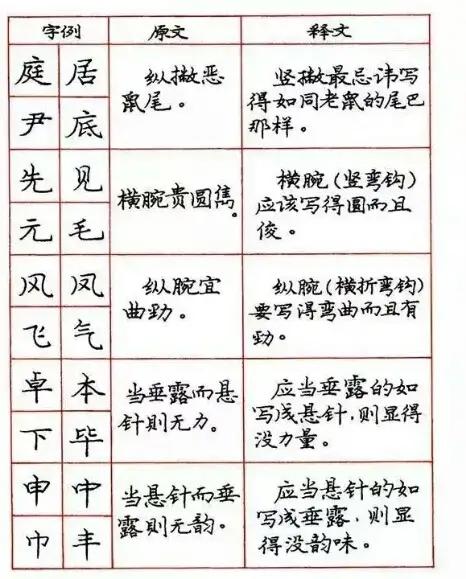 字例 原文 释文
庭 居
尹 底
纵撇恶
鼠尾。
竖撇最忌讳写
得如同老鼠的尾巴
那样。
先 见
元 毛
横腕贵圆隽。
横腕(竖弯钩)
应该写得圆而且
俊。
风 凤
飞 气
纵腕宜
曲劲。
纵腕(横折弯钩)
要写得弯曲而且有
劲。
卓 本
下 毕
当垂露而悬
针则无力。
应当垂露的如
写成悬针,则显得
没力量。
申 中
巾 丰
当悬针而垂
露则无韵。
应当悬针的如
写成垂露,则显
得没韵味。